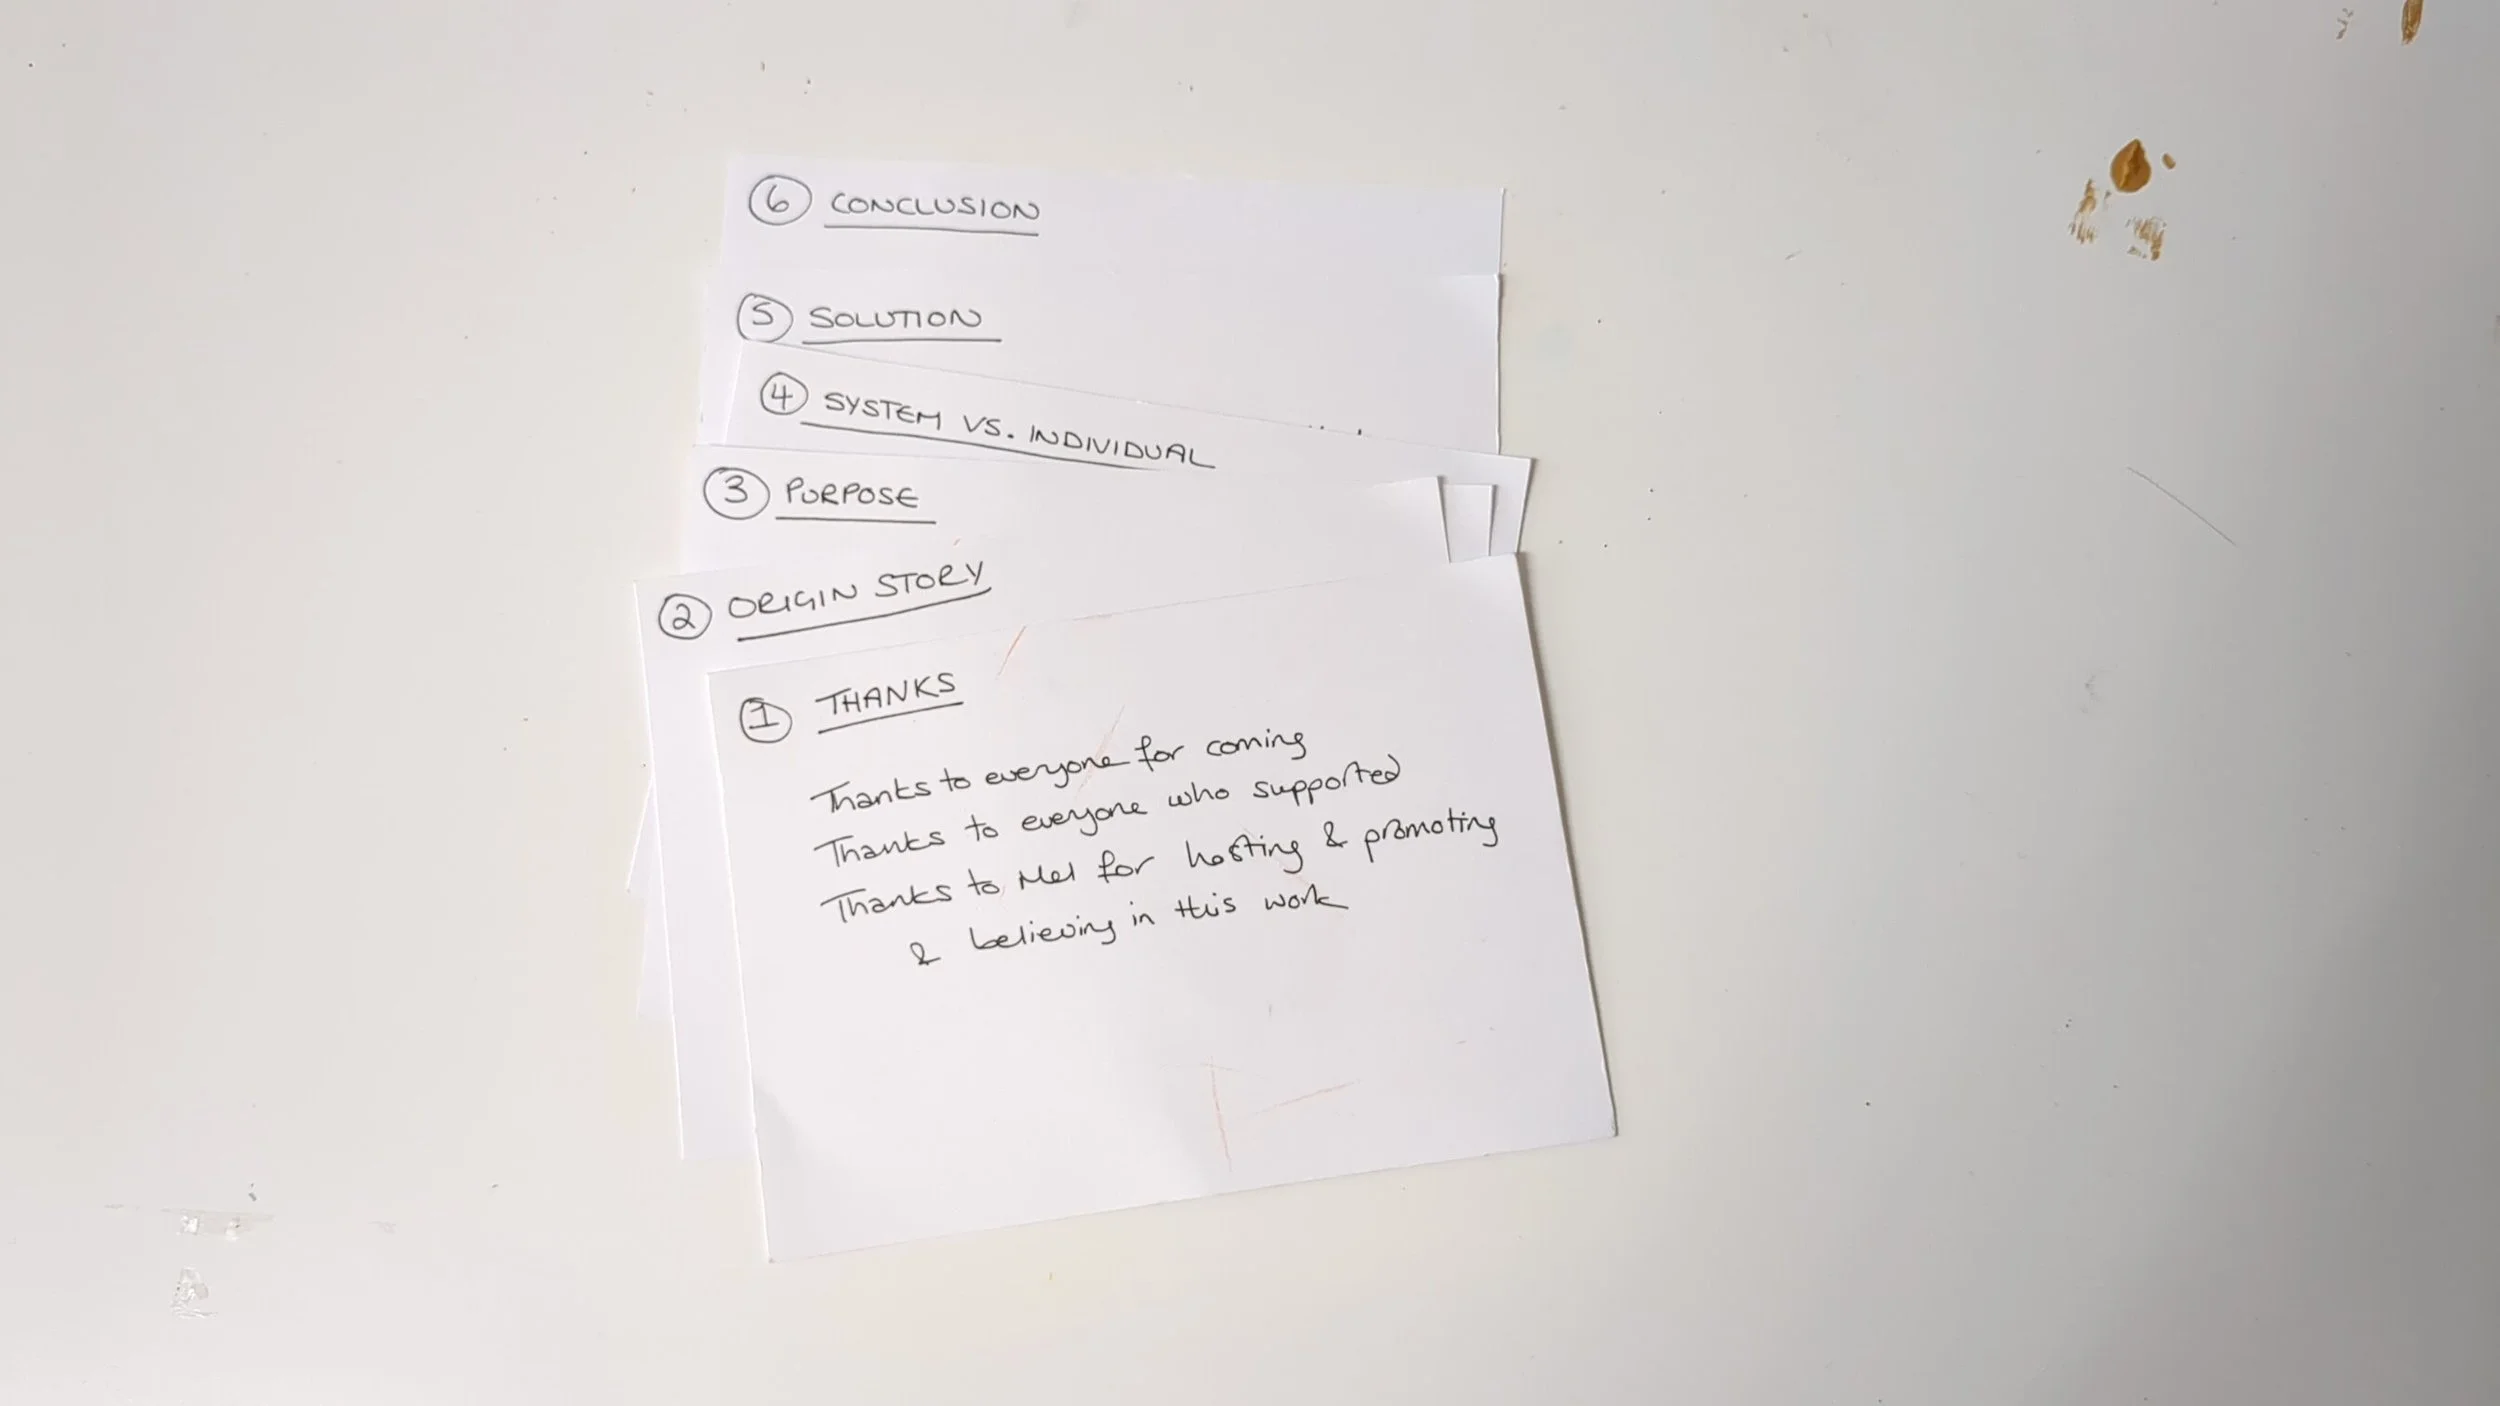 6 CONCLUSION
5 SOLUTION
4 SYSTEM VS. INDIVIDUAL
3 PURPOSE
2 ORIGIN STORY
1 THANKS
Thanks to everyone for coming
Thanks to everyone who supported
Thanks to Mel for hosting & promoting
& believing in this work